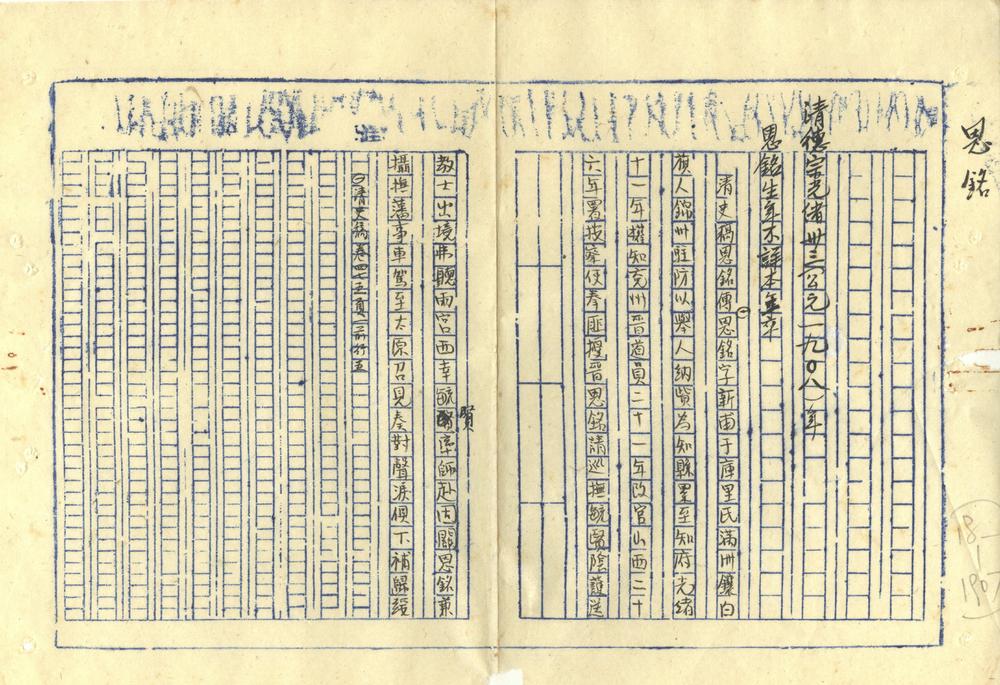 恩銘
清德宗光緒卅三(公元一九〇八)年
恩銘生年不詳本年卒
清史稿恩銘傳㊀恩銘字新甫于庫里氏滿州鑲白
旗人錦州駐防以舉人納貲為知縣累至知府光緒
十一年權知兗州晋道員二十一年改官山西二十
六年署按察使拳匪擾晋恩銘請巡撫毓賢陰護送
教士出境弗聽兩宮西幸毓賢率師赴固關恩銘兼
賢
攝撫藩事車駕至太原召見奏對聲淚俱下補歸綏
註
㊀清史稿卷四七五頁二前行五
18—
190